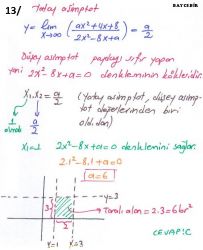 BAYCEBİR
13/ Yatay asimptot
y = lim x→∞ (ax²+4x+8 / 2x²-8x+a) = a/2
Düşey asimptot paydayı sıfır yapan
yani 2x²-8x+a=0 denkleminin kökleridir.
x₁.x₂ = a/2 (Yatay asimptot, düşey asimp-
tot değerlerinden biri
olduğundan)
1 olmalı
a/2
x₁=1 2x²-8x+a=0 denklemini sağlar.
2.1²-8.1+a=0
a=6
y=3
3
Taralı alan = 2.3=6 br²
2
x=3
CEVAP:C